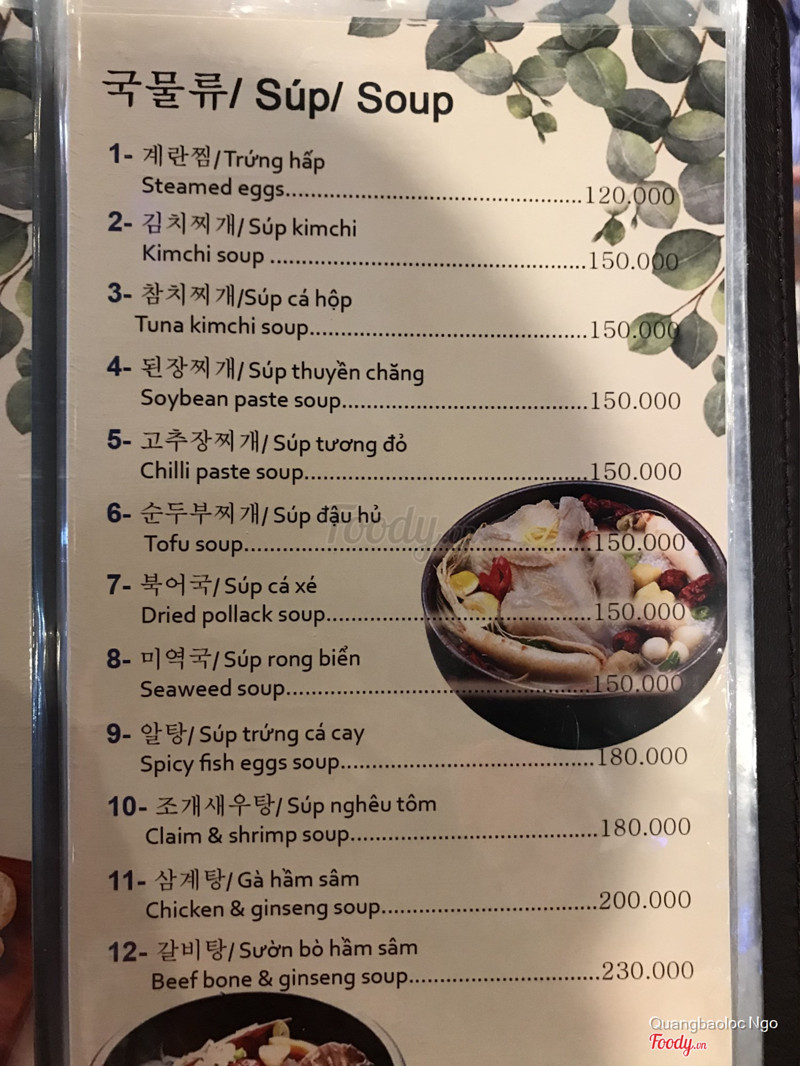 국물류/ Súp/ Soup
1- 계란찜/Trứng hấp
Steamed eggs..................................................120.000
2- 김치찌개/Súp kimchi
Kimchi soup .....................................................150.000
3- 참치찌개/Súp cá hộp
Tuna kimchi soup..............................................150.000
4- 된장찌개/Súp thuyền chăng
Soybean paste soup.........................................150.000
5- 고추장찌개/ Súp tương đỏ
Chilli paste soup...............................................150.000
6- 순두부찌개/ Súp đậu hủ
Tofu soup..........................................................150.000
7- 북어국/ Súp cá xé
Dried pollack soup............................................150.000
8- 미역국/Súp rong biển
Seaweed soup...................................................150.000
9- 알탕/ Súp trứng cá cay
Spicy fish eggs soup..........................................180.000
10- 조개새우탕/ Súp nghêu tôm
Claim & shrimp soup.........................................180.000
11- 삼계탕/ Gà hầm sâm
Chicken & ginseng soup....................................200.000
12- 갈비탕/ Sườn bò hầm sâm
Beef bone & ginseng soup................................230.000
Foody.vn
Quangbaoloc Ngo
Foody.vn